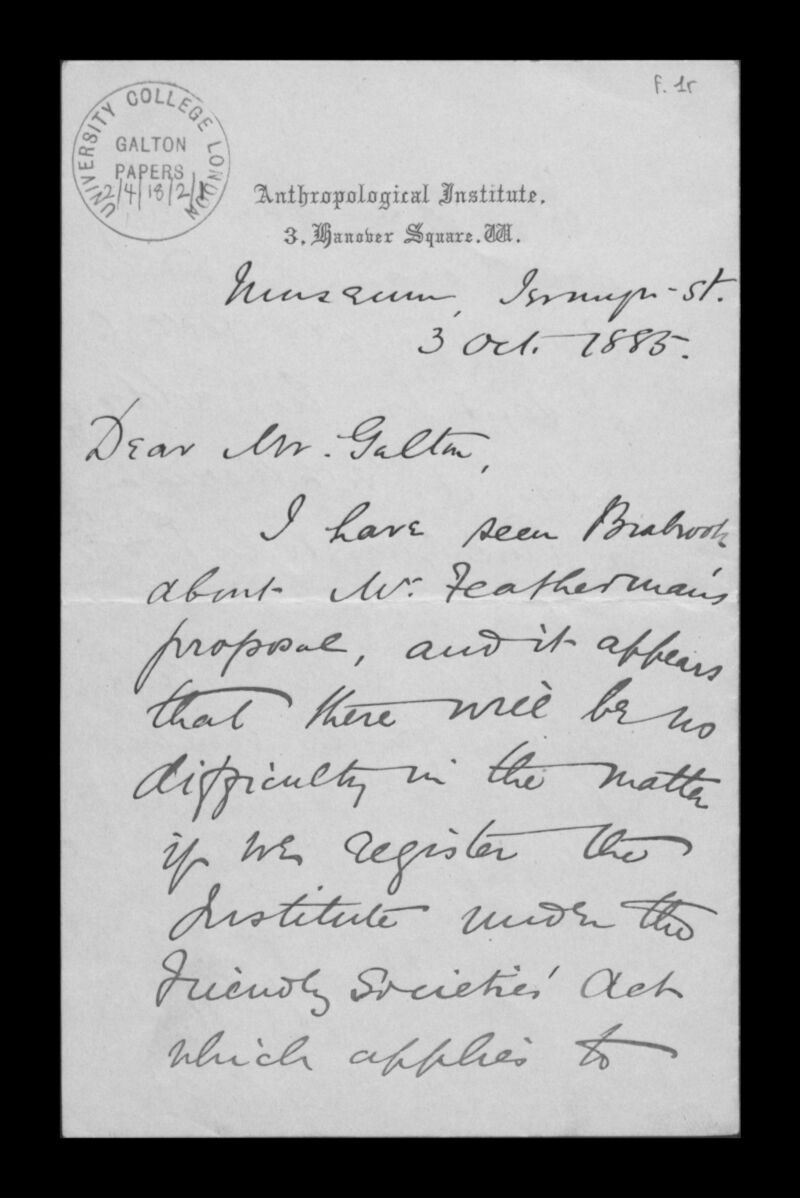 f. 1r
UNIVERSITY COLLEGE LONDON
GALTON
PAPERS
2/4/18/2/1
Anthropological Institute,
3, Hanover Square, W.
Museum, Jermyn-st.
3 Oct. 1885.
Dear Mr. Galton,
I have seen Brabrook
about Mr. Featherman's
proposal, and it appears
that there will be no
difficulty in the matter
if we register the
Institute under the
Friendly Societies' Act
which applies to